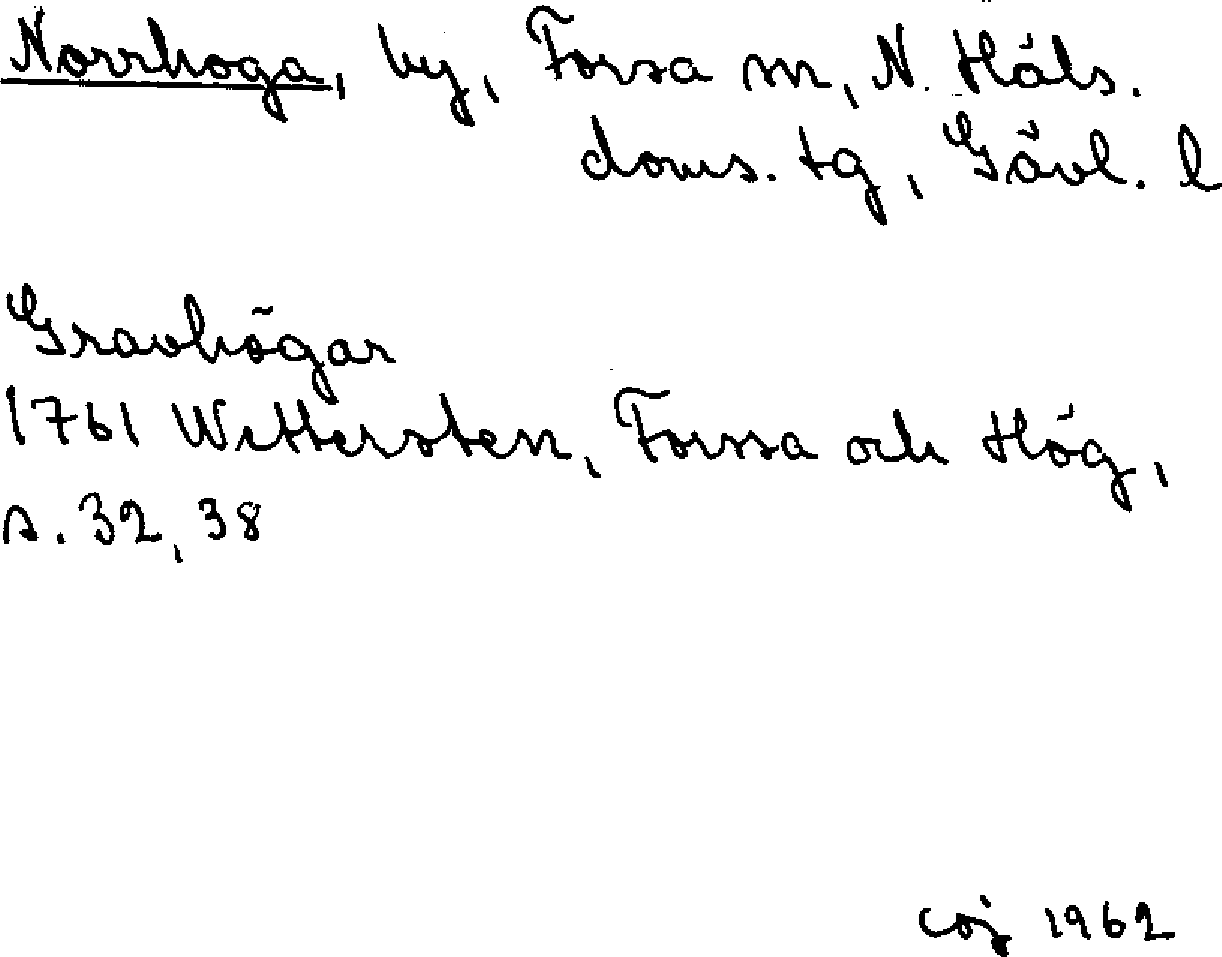 Norrhoga, by, Forsa sn, N. Häls.
doms. tg, Gävl. l
Gravhögar
1761 Wettersten, Forssa och Hög,
s. 32, 38
coj 1962